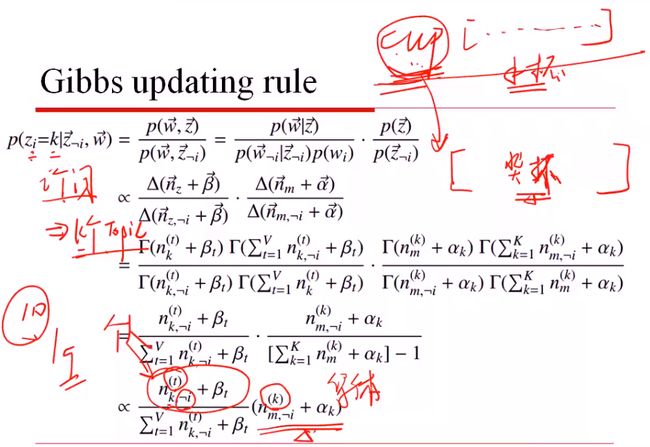 cup [ ........ ]
水杯
Gibbs updating rule
[ 奖杯 ]
p(z_i=k|\vec{z}_{¬i}, \vec{w}) = \frac{p(\vec{w}, \vec{z})}{p(\vec{w}, \vec{z}_{¬i})} = \frac{p(\vec{w}|\vec{z})}{p(\vec{w}_{¬i}|\vec{z}_{¬i})p(w_i)} · \frac{p(\vec{z})}{p(\vec{z}_{¬i})}
i个词
∝ \frac{Δ(\vec{n}_z + \vec{β})}{Δ(\vec{n}_{z,¬i} + \vec{β})} · \frac{Δ(\vec{n}_m + \vec{α})}{Δ(\vec{n}_{m,¬i} + \vec{α})}
⇒ k个 Topic
= \frac{Γ(n_k^{(t)} + β_t) Γ(\sum_{t=1}^{V} n_{k,¬i}^{(t)} + β_t)}{Γ(n_{k,¬i}^{(t)} + β_t) Γ(\sum_{t=1}^{V} n_k^{(t)} + β_t)} · \frac{Γ(n_m^{(k)} + α_k) Γ(\sum_{k=1}^{K} n_{m,¬i}^{(k)} + α_k)}{Γ(n_{m,¬i}^{(k)} + α_k) Γ(\sum_{k=1}^{K} n_m^{(k)} + α_k)}
10
= \frac{n_{k,¬i}^{(t)} + β_t}{\sum_{t=1}^{V} n_{k,¬i}^{(t)} + β_t} · \frac{n_{m,¬i}^{(k)} + α_k}{[\sum_{k=1}^{K} n_m^{(k)} + α_k] − 1}
∝ \frac{n_{k,¬i}^{(t)} + β_t}{\sum_{t=1}^{V} n_{k,¬i}^{(t)} + β_t} (n_{m,¬i}^{(k)} + α_k)